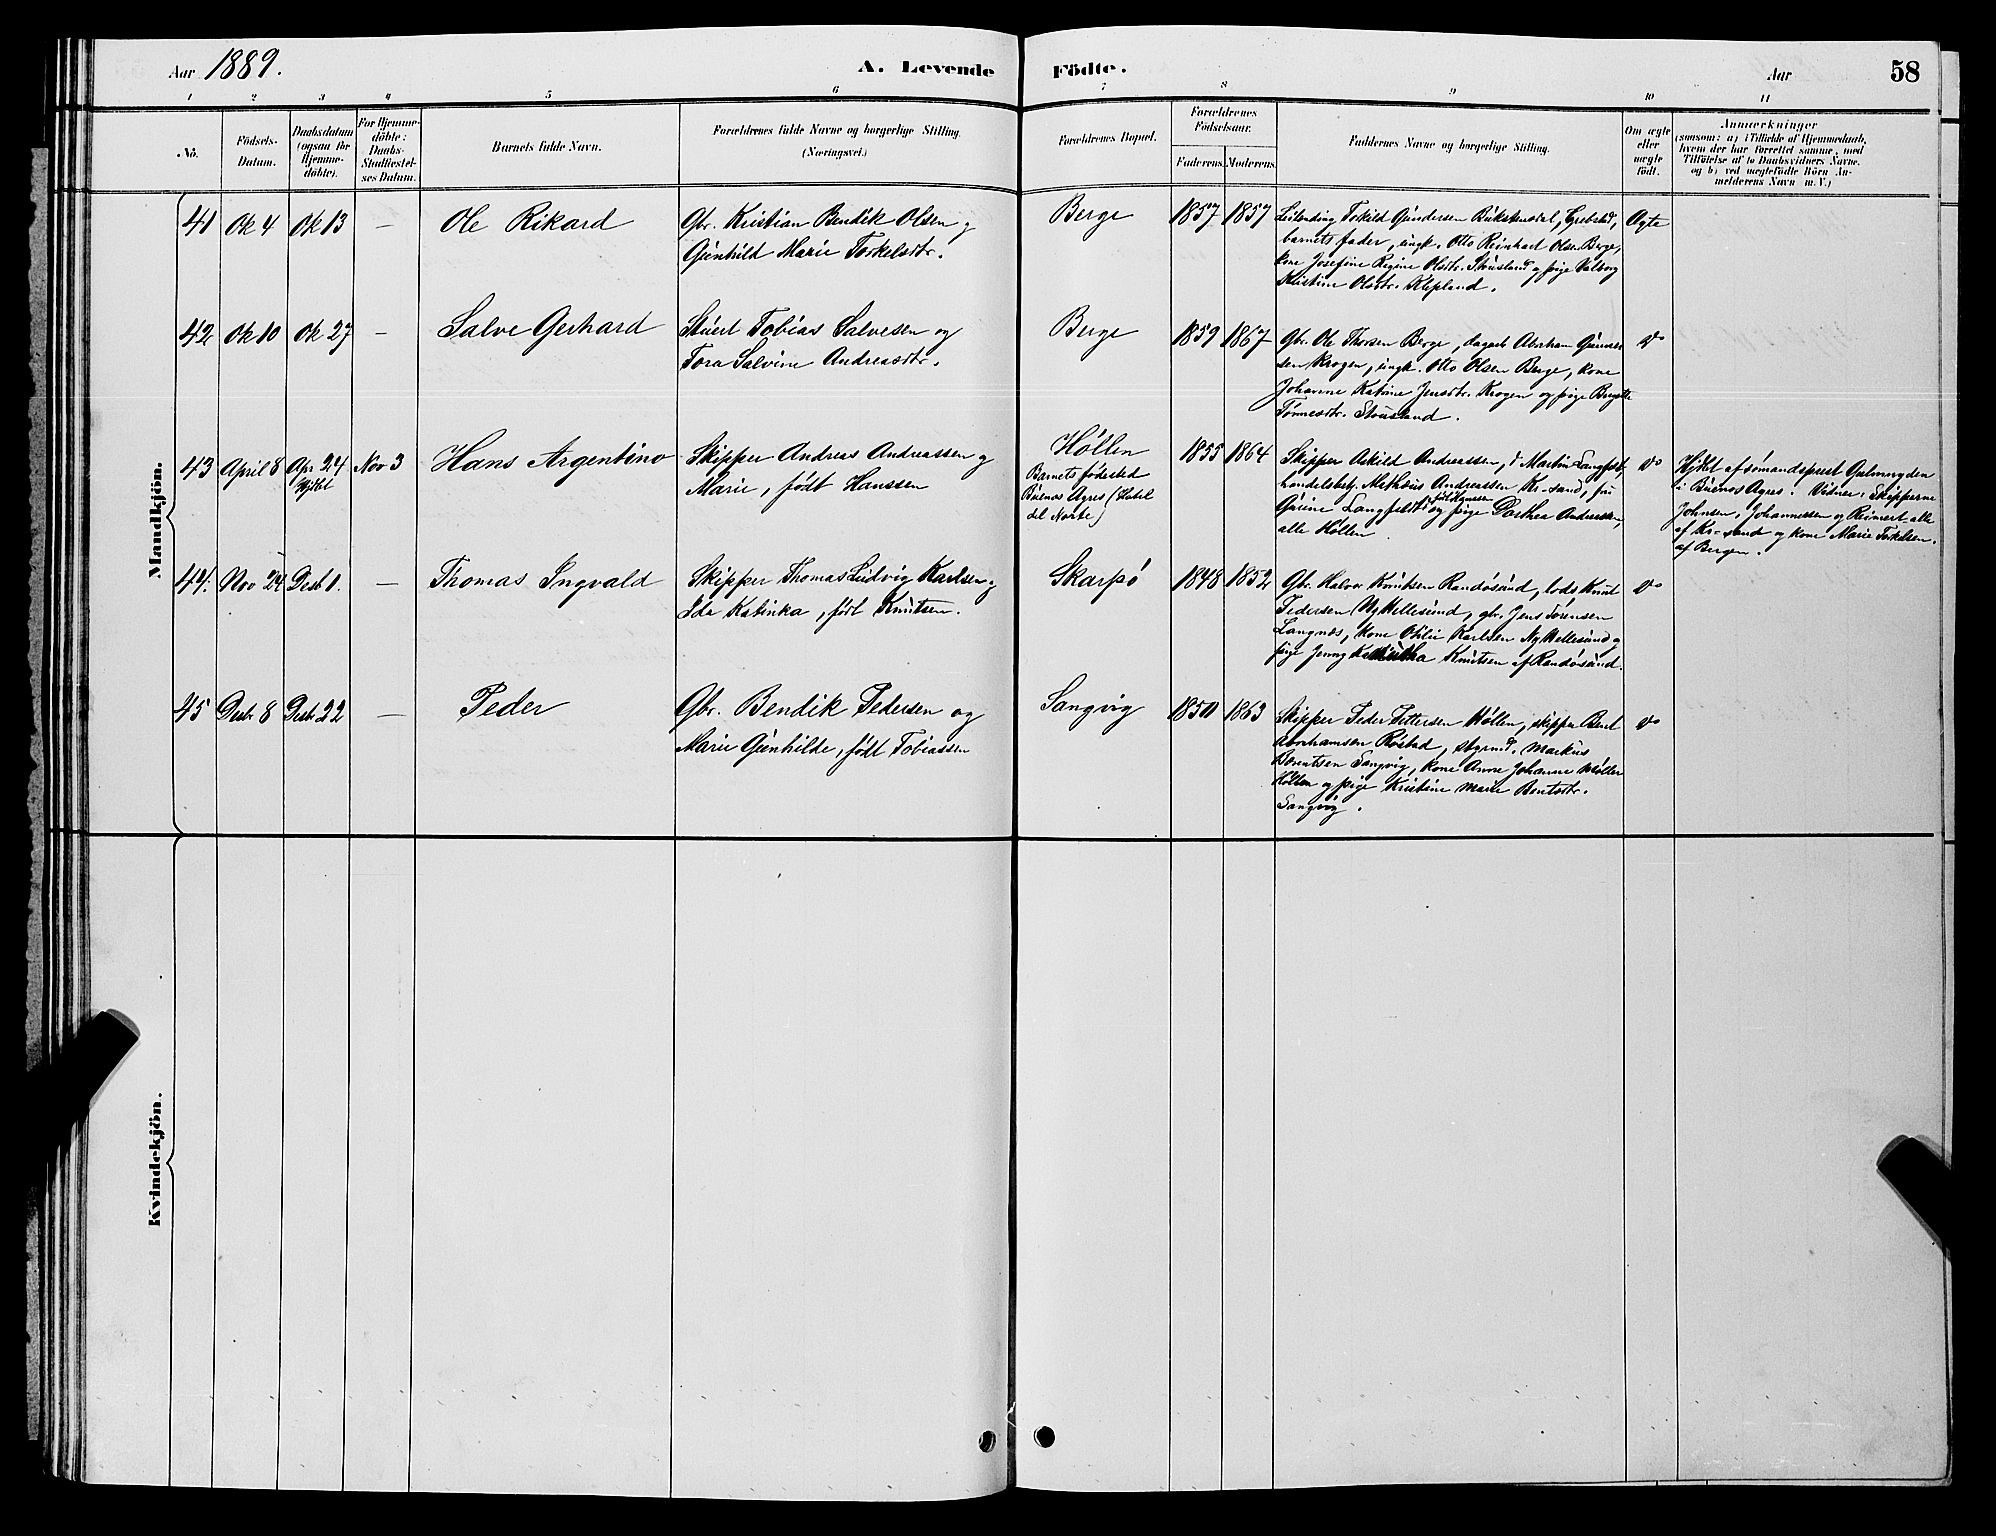 Aar 1889.
A. Levende Födte.
Aar
58
1 2 3 4 5 6 7 8 9 10 11
No.
Födsels-
Datum.
Daabsdatum
(ogsaa for
Hjemme-
döbte).
For Hjemme-
döbte:
Daabs-
Stadfæstel-
ses Datum.
Barnets fulde Navn.
Forældrenes fulde Navne og borgerlige Stilling.
(Næringsvei.)
Forældrenes Bopæl.
Forældrenes
Födselsaar.
Faderens. Moderens.
Faddernes Navne og borgerlige Stilling.
Om ægte
eller
uægte
födt.
Anmærkninger
(saasom: a) i Tilfælde af Hjemmedaab,
hvem der har forrettet samme, med
Tilföielse af to Daabsvidners Navne,
og b) ved uægtefödte Börn An-
melderens Navn m. V.)
Mandkjön.
41 Ok 4 Ok 13 — Ole Rikard
Gbr. Kristian Bendik Olsen og
Gunhild Marie Torkelsdtr.
Berge 1857 1857
Leilending Torkild Gundersen
barnets fader, ungk. Otto Reinhart Olsen Berge,
kone Josefine Regine Olsdtr. Stousland og pige Valborg
Kristine Olsdtr. Klepland.
Ægte
42 Ok 10 Ok 27 — Salve Gerhard
Stuert Tobias Salvesen og
Tora Salvine Andreasdtr.
Berge 1859 1867
Gbr. Ole Thorsen Berge, dagarb. Abraham Gunder
sen Krogen, ungk. Otto Olsen Berge, kone
Johanne Katrine Jensdtr. Krogen og pige Birgitte
Tønnesdtr. Stousland.
do
43 April 8 Apr 24 Nov 3 Hans Argentino
Hjdbt
Skipper Andreas Andreassen og
Marie, født Hanssen
Høllen 1855 1864
Barnets fødested
Buenos Agres (Hotel
del Norte)
Skipper Askild Andreassen, do Martin Langfeldt,
handelsbetj. Mathæus Andreassen Kr-sand, fru
Gurine Langfeldt født Hanssen og pige Dorthea Andreassen,
alle Høllen.
do
Hjdbt af sømandsprest
i Buenos Agres. Vidner: Skipperne
Johnsen, Johannessen og Reinert alle
af Kr-sand og kone Marie Torkelsen
af Bergen.
44. Nov 24 Desb 1. — Thomas Ingvald
Skipper Thomas Ludvig Karlsen og
Ida Katinka, født Knutsen.
Skarpø 1848 1852
Gbr. Halvor Knutsen Randøsund, lods Knut
Pedersen Ny Hellesund, gbr. Jens Sørensen
Langnes, kone Otilie Karlsen Ny Hellesund og
pige Jenny Knutsen af Randøsund.
do
45 Desbr 8 Desbr 22 — Peder
Gbr. Bendik Pedersen og
Marie Gunhilde, født Tobiassen
Sangvig 1850 1863
Skipper Peder Pettersen Høllen, skipper Bent
Abrahamsen Røstad, styrmd. Markus
Berntsen Sangvig, kone Anne Johanne Møller
Høllen og pige Kristine Marie Bentsdtr.
Sangvig.
do
Kvindekjön.